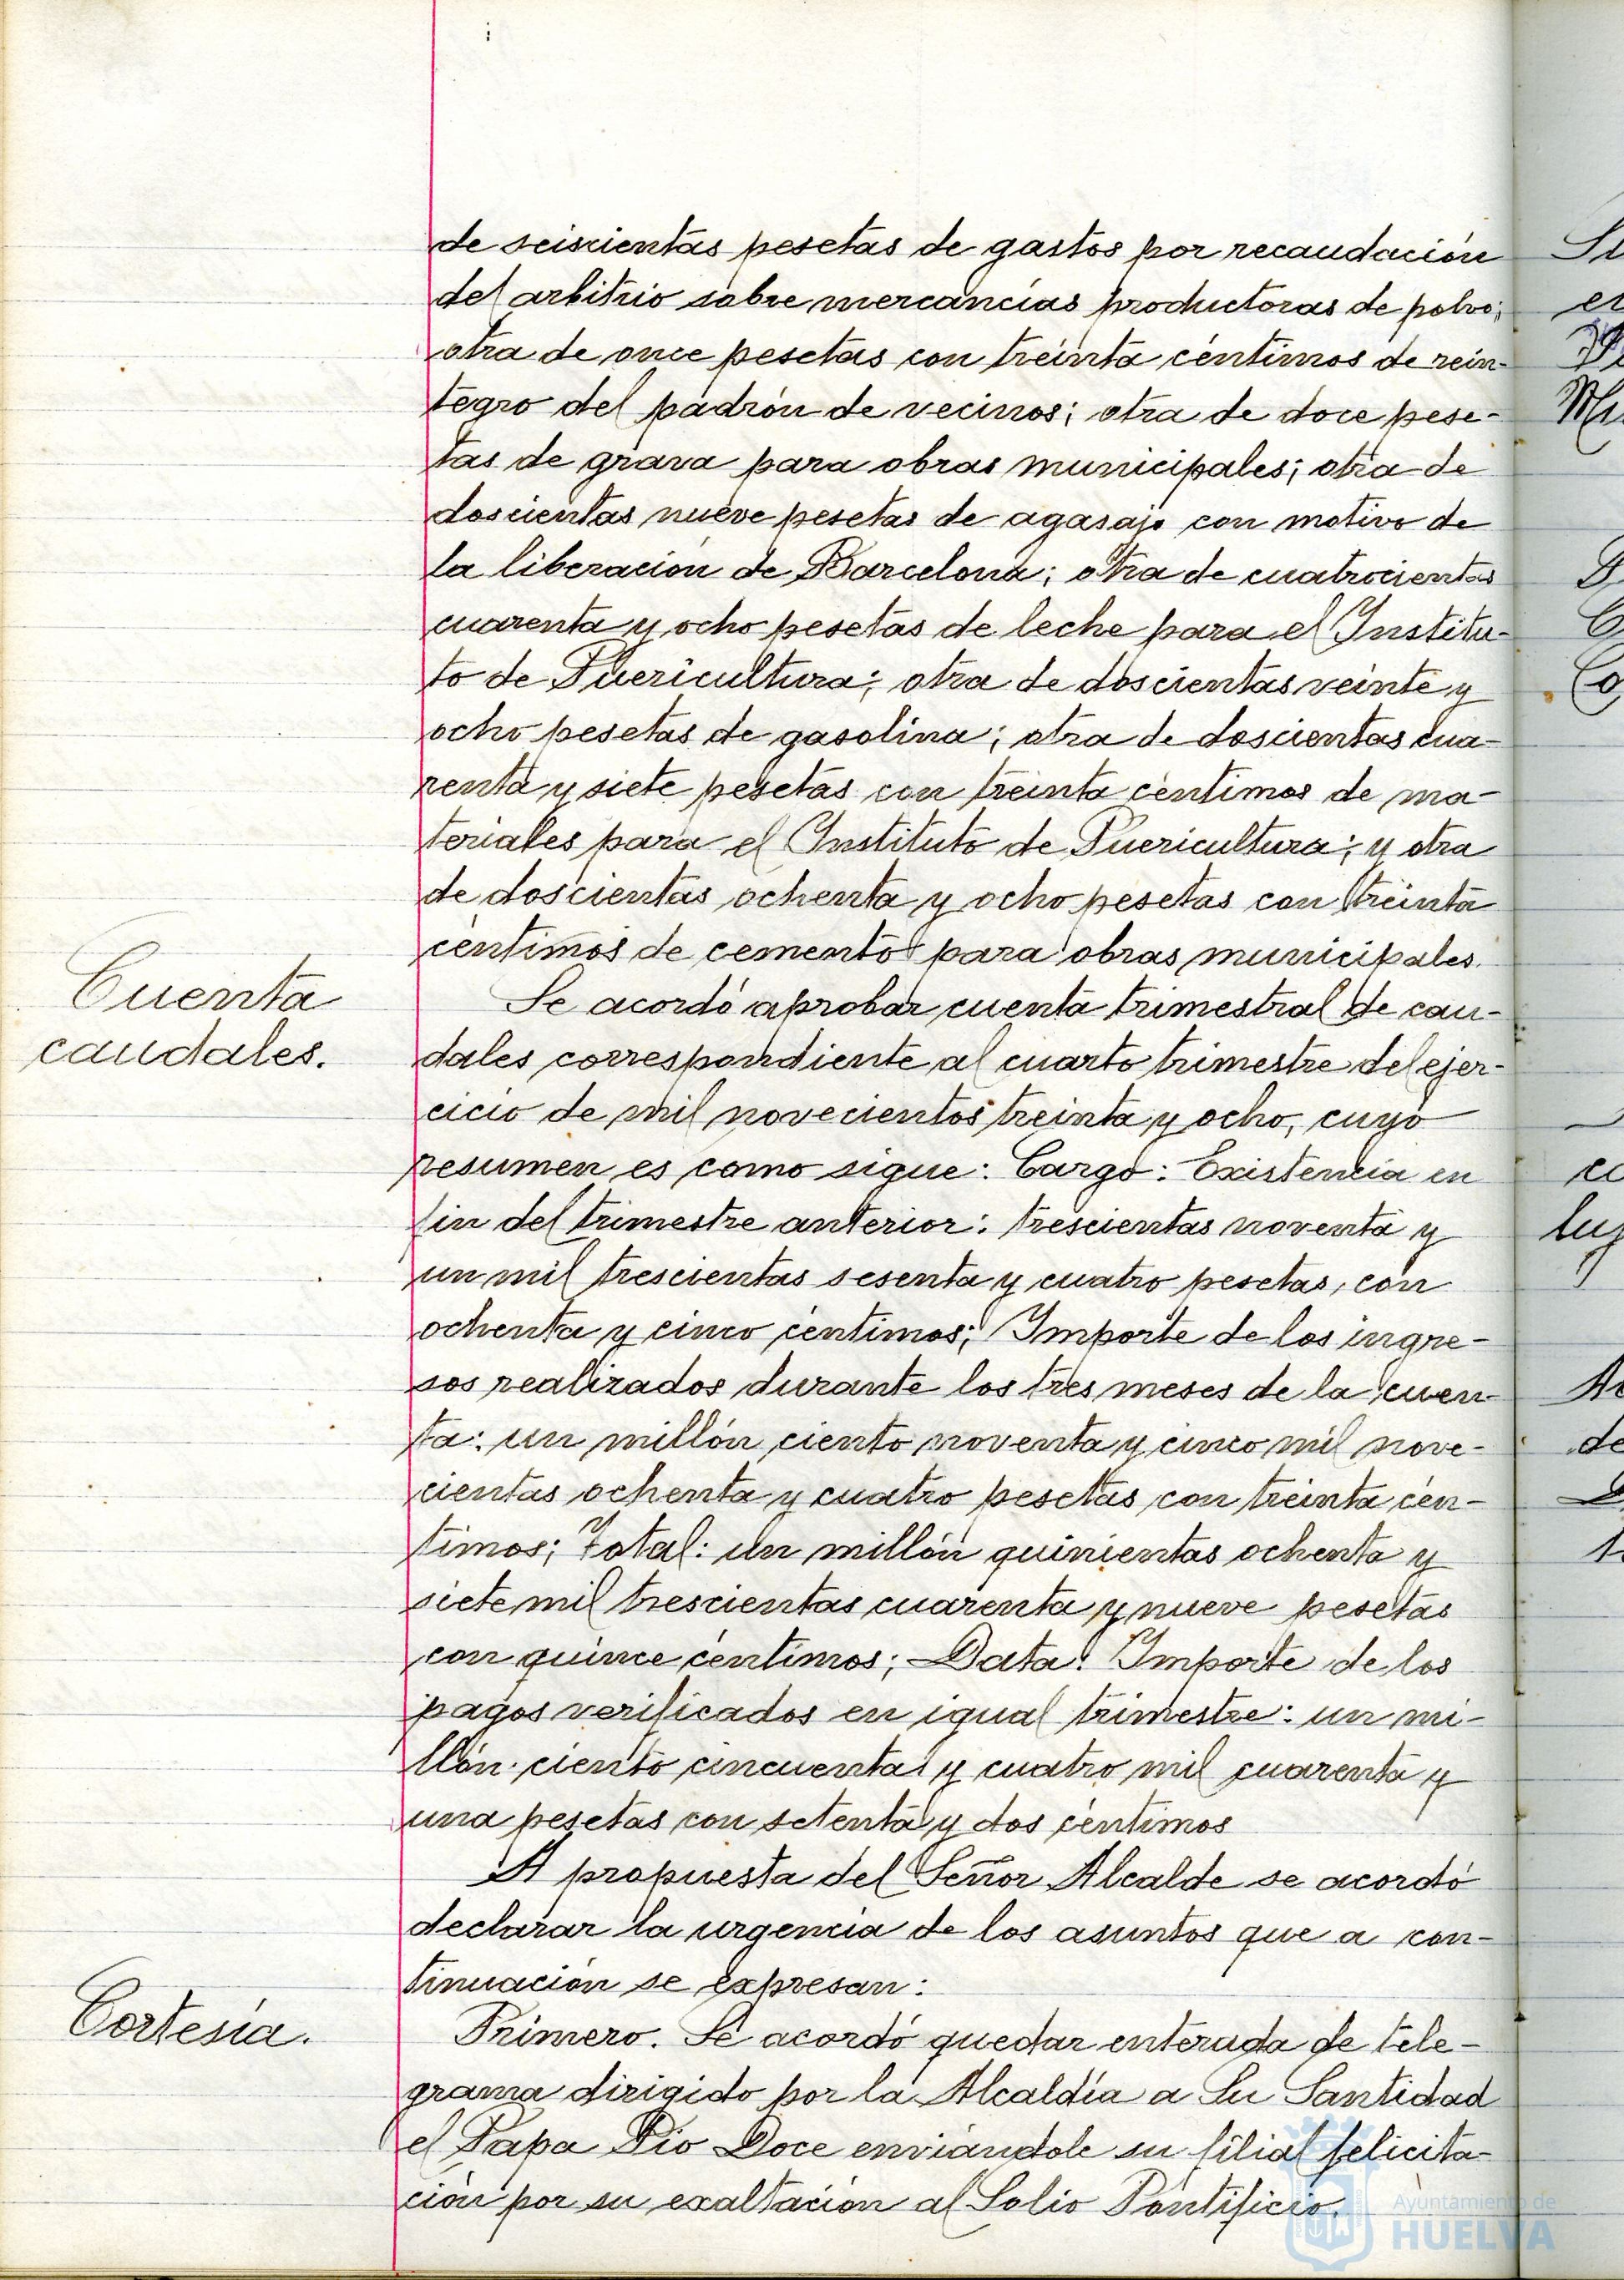 de seiscientas pesetas de gastos por recaudación
del arbitrio sobre mercancías productoras de polvo;
otra de once pesetas con treinta céntimos de rein-
tegro del padrón de vecinos; otra de doce pese-
tas de grava para obras municipales; otra de
doscientas nueve pesetas de agasajo con motivo de
la liberación de Barcelona; otra de cuatrocientas
cuarenta y ocho pesetas de leche para el Institu-
to de Puericultura; otra de doscientas veinte y
ocho pesetas de gasolina; otra de doscientas cua-
renta y siete pesetas con treinta céntimos de ma-
teriales para el Instituto de Puericultura; y otra
de doscientas ochenta y ocho pesetas con treinta
céntimos de cemento para obras municipales.
Cuenta
caudales.
Se acordó aprobar cuenta trimestral de cau-
dales correspondiente al cuarto trimestre del ejer-
cicio de mil novecientos treinta y ocho, cuyo
resumen es como sigue: Cargo: Existencia en
fin del trimestre anterior: trescientas noventa y
un mil trescientas sesenta y cuatro pesetas, con
ochenta y cinco céntimos; Importe de los ingre-
sos realizados durante los tres meses de la cuen-
ta: un millón ciento noventa y cinco mil nove-
cientas ochenta y cuatro pesetas con treinta cén-
timos; Total: un millón quinientas ochenta y
siete mil trescientas cuarenta y nueve pesetas
con quince céntimos; Data: Importe de los
pagos verificados en igual trimestre: un mi-
llón ciento cincuenta y cuatro mil cuarenta y
una pesetas con setenta y dos céntimos
A propuesta del Señor Alcalde se acordó
declarar la urgencia de los asuntos que a con-
tinuación se expresan:
Cortesía.
Primero. Se acordó quedar enterada de tele-
grama dirigido por la Alcaldía a Su Santidad
el Papa Pío Doce enviándole su filial felicita-
ción por su exaltación al Solio Pontificio.
Ayuntamiento de
HUELVA